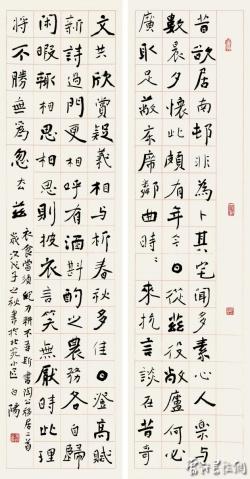 昔欲居南邨非為卜其宅聞多素心人樂与
數晨夕懷此頗有年今日從茲役敝廬何必
廣取足蔽床席鄰曲時〻來抗言談在昔奇
文共欣賞疑義相析春秋多佳日登高賦
新詩過門更相呼有酒斟酌之農務各自歸
閑暇輒相思相思則披衣言笑無厭時此理
將不勝無為忽去茲
衣食當須紀力耕不吾欺書陶公移居二首
歲次戊子之秋書於北苑小區白陽